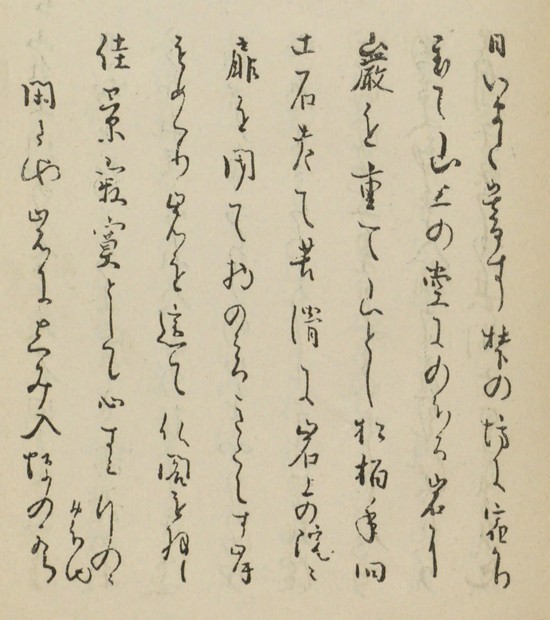 日いまた暮す梺の坊に宿かり
置て山上の堂にのほる岩に
巌を重て山とし松柏年旧
土石老て苔滑に岩上の院々
扉を閉て物の音きこえす岸
をめくり岩を這て仏閣を拝し
佳景寂寞として心すみ行のミ
おほゆ
閑さや岩にしみ入蝉の声